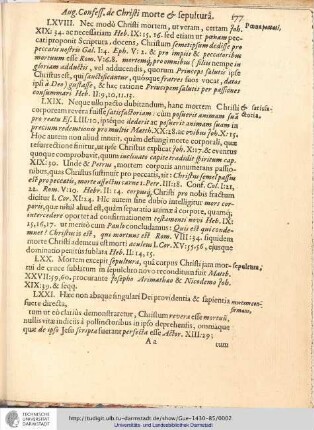 Aug. Confess. de Christi morte & sepultura. 177
LXVIII. Nec modò Christi mortem, ut veram, certam Joh. Pœnæ peccati,
XIX: 34. ac necessariam Heb. IX: 15, 16. sed etiam ut pœnam peccati
proponit Scriptura, docens, Christum semetipsum dedisse pro
peccatis nostris Gal. I:4. Eph. V: 2. & pro impiis & peccatoribus
mortuum esse Rom. V:6.8. mortemq; pro omnibus (filiis nempe in
gloriam adductis, vel adducendis, quorum Princeps salutis ipse
Christus est, qui sanctificantur, quosque fratres suos vocat, datos
ipsi à Deo) gustasse, & hac ratione Principem salutis per passiones
consummari Heb. II: 9, 10, 11, 13.
LXIX. Neque ullo pacto dubitandum, hanc mortem Christi & satisfa-
corpoream revera fuisse satisfactoriam: cùm posuerit animam suã ctoria,
pro reatu Es. LIII: 10, ipséque dederit ac posuerit animam suam in
precium redemtionis pro multis Matth. XX: 28. ac ovibus Joh. X: 15.
Hoc autem non aliud innuit, quàm defungi morte corporali, quæ
resurrectione finitur, ut ipse Christus explicat Joh. X: 17. & eventus
quoque comprobavit, quum inclinato capite tradidit spiritum cap.
XIX: 30. Unde & Petrus, mortem corporis annumerans passionibus,
quas Christus sustinuit pro peccatis, ait: Christus semel passus
est pro peccatis, morte affectus carne 1. Petr. III: 18. Conf. Col. I: 21,
22. Rom. V: 10. Hebr. II: 14. corpusq; Christi pro nobis fractum
dicitur 1. Cor. XI: 24. Hîc autem sine dubio intelligitur mors corporis,
quæ nihil aliud est, quàm separatio animæ à corpore, quamq;
intercedere oportet ad confirmationem testamenti novi Heb. IX:
15, 16, 17. ut meritò cum Paulo concludamus: Quis est qui condemnet?
Christus is est, qui mortuus est Rom. VIII: 34. siquidem
morte Christi ademtus est morti aculeus 1. Cor. XV: 55, 56, ejusque
dominatio penitus sublata Heb. II: 14, 15.
LXX. Mortem excepit sepultura, quâ corpus Christi jam mortui sepultura,
de cruce sublatum in sepulchro novo reconditum fuit Matth.
XXVII: 59, 60, procurante Josepho Arimathæo & Nicodemo Joh.
XIX: 39. & seqq.
LXXI. Hæc non absque singulari Dei providentia & sapientia
fuere directa,
tum ut eò clariùs demonstraretur, Christum revera esse mortuũ,
nullis vitæ indiciis à pollinctoribus in ipso deprehensis, omniaque
quæ de ipso Jesu scripta fuerant perfecta esse Actor. XIII: 29;
A a cum
http://tudigit.ulb.tu-darmstadt.de/show/Gue-1430-85/0002
Universitäts- und Landesbibliothek Darmstadt